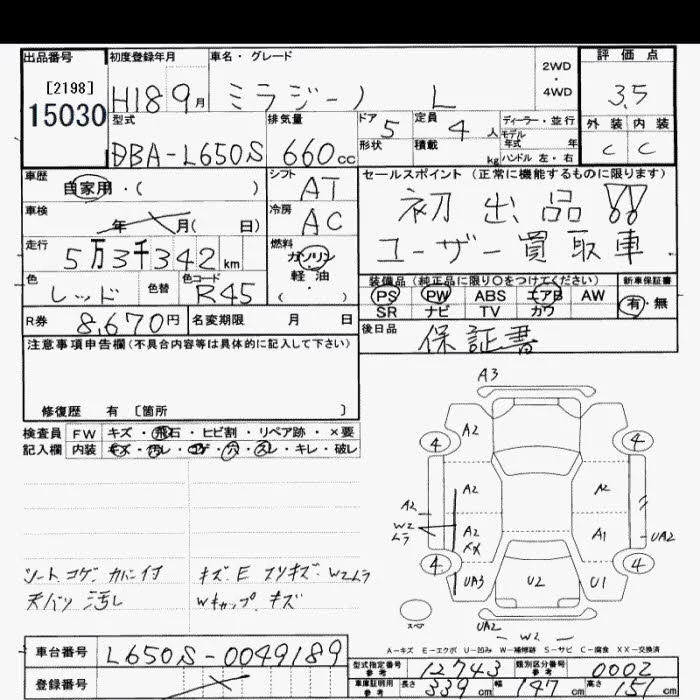 出品番号 初度登録年月 車名・グレード 2WD ・ 4WD 評価点
[2198]
15030
H18 9月 ミラジーノ L 3.5
型式 排気量 ドア 5 定員 4人 ディーラー・並行 外装 内装
DBA-L650S 660cc 形状 積載 kg モデル年式 年 C C
ハンドル 左・右
車歴 自家用・( ) シフト AT セールスポイント (正常に機能するものに限ります)
車検 年 月( 日) 冷房 AC 初出品!!
走行 5万3千342km 燃料 ガソリン・軽油 ( ) ユーザー買取車
色 レッド 色替 色コード R45
装備品(純正品に限り○をつけてください) 新車保証書
PS PW ABS エアB AW 有・無
SR ナビ TV カワ
R券 8,670円 名変期限 月 日 後日品 保証書
注意事項申告欄(不具合内容等は具体的に記入して下さい)
修復歴 有 [箇所 ]
検査員 FW キズ・飛石・ヒビ割・リペア跡・×要
記入欄 内装 キズ・汚レ・コゲ・穴・スレ・キレ・破レ
A3
A2
4 4
A2 A2
A2 W2 ムラ A2 XX A1 UA2
4 4
UA3 U2 U1
スペア
UA2 W2
シート コゲ カバー付 キズ・E スリキズ・W2ムラ
天バリ 汚レ Wキャップ キズ
A-キズ E-エクボ U-凹み W-補修跡 S-サビ C-腐食 XX-交換済
車台番号 L650S-0049189
型式指定番号 参考 12743 類別区分番号 参考 0002
登録番号
車庫証明用 参考 長さ 339cm 幅 147cm 高さ 151cm